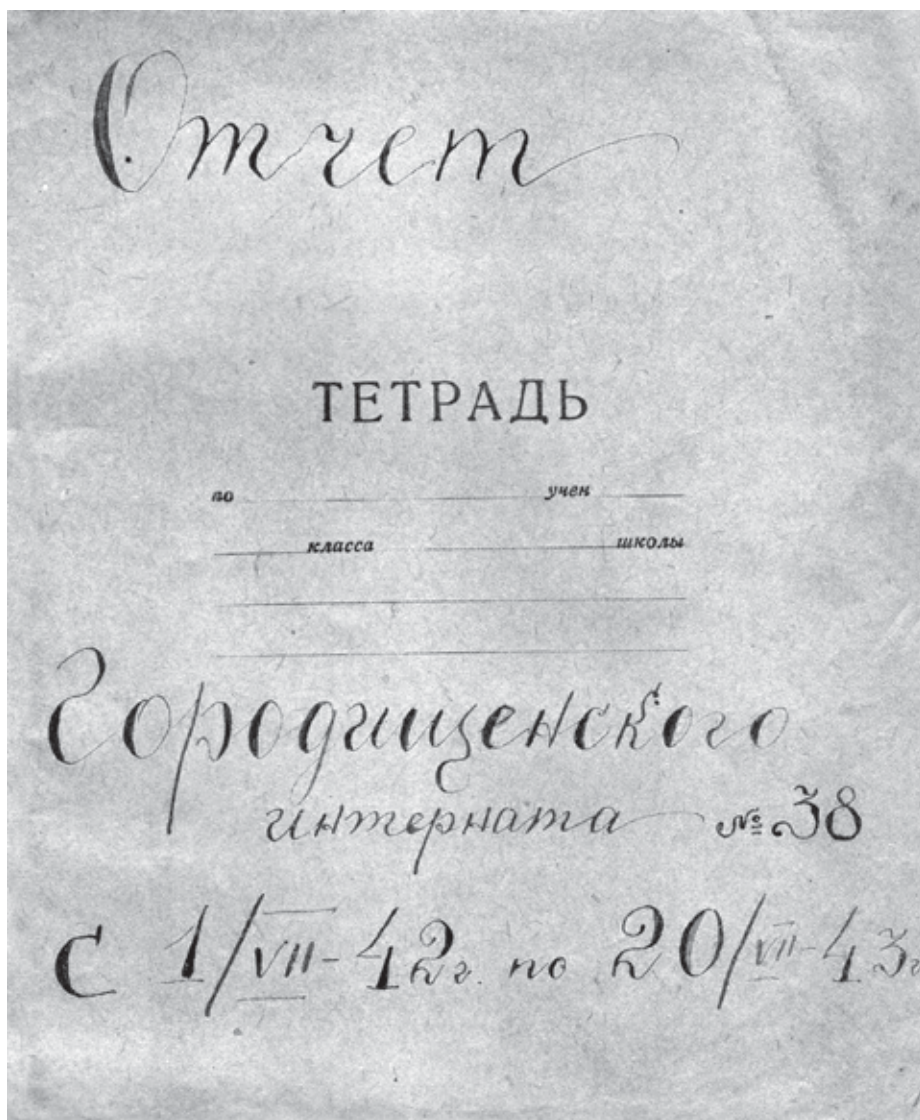 Отчет
ТЕТРАДЬ
по учен
класса школы
Городищенского
интерната № 38
С 1/VII-42г. по 20/VII-43г